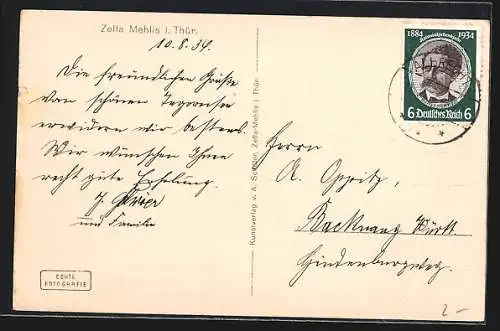 Zella Mehlis i. Thür.
10.8.34.
Die freundlichen Grüße
vom schönen Tegernsee
erwidern wir bestens.
Wir wünschen Ihnen
recht gute Erholung.
und Familie
ECHTE
FOTOGRAFIE
Kunstverlag v. A. Zella-Mehlis i. Thür.
1884 1934
6 Deutsches Reich 6
Herrn
A. Oppritz,
Backnang Württ.
Hindenburgweg.
2-